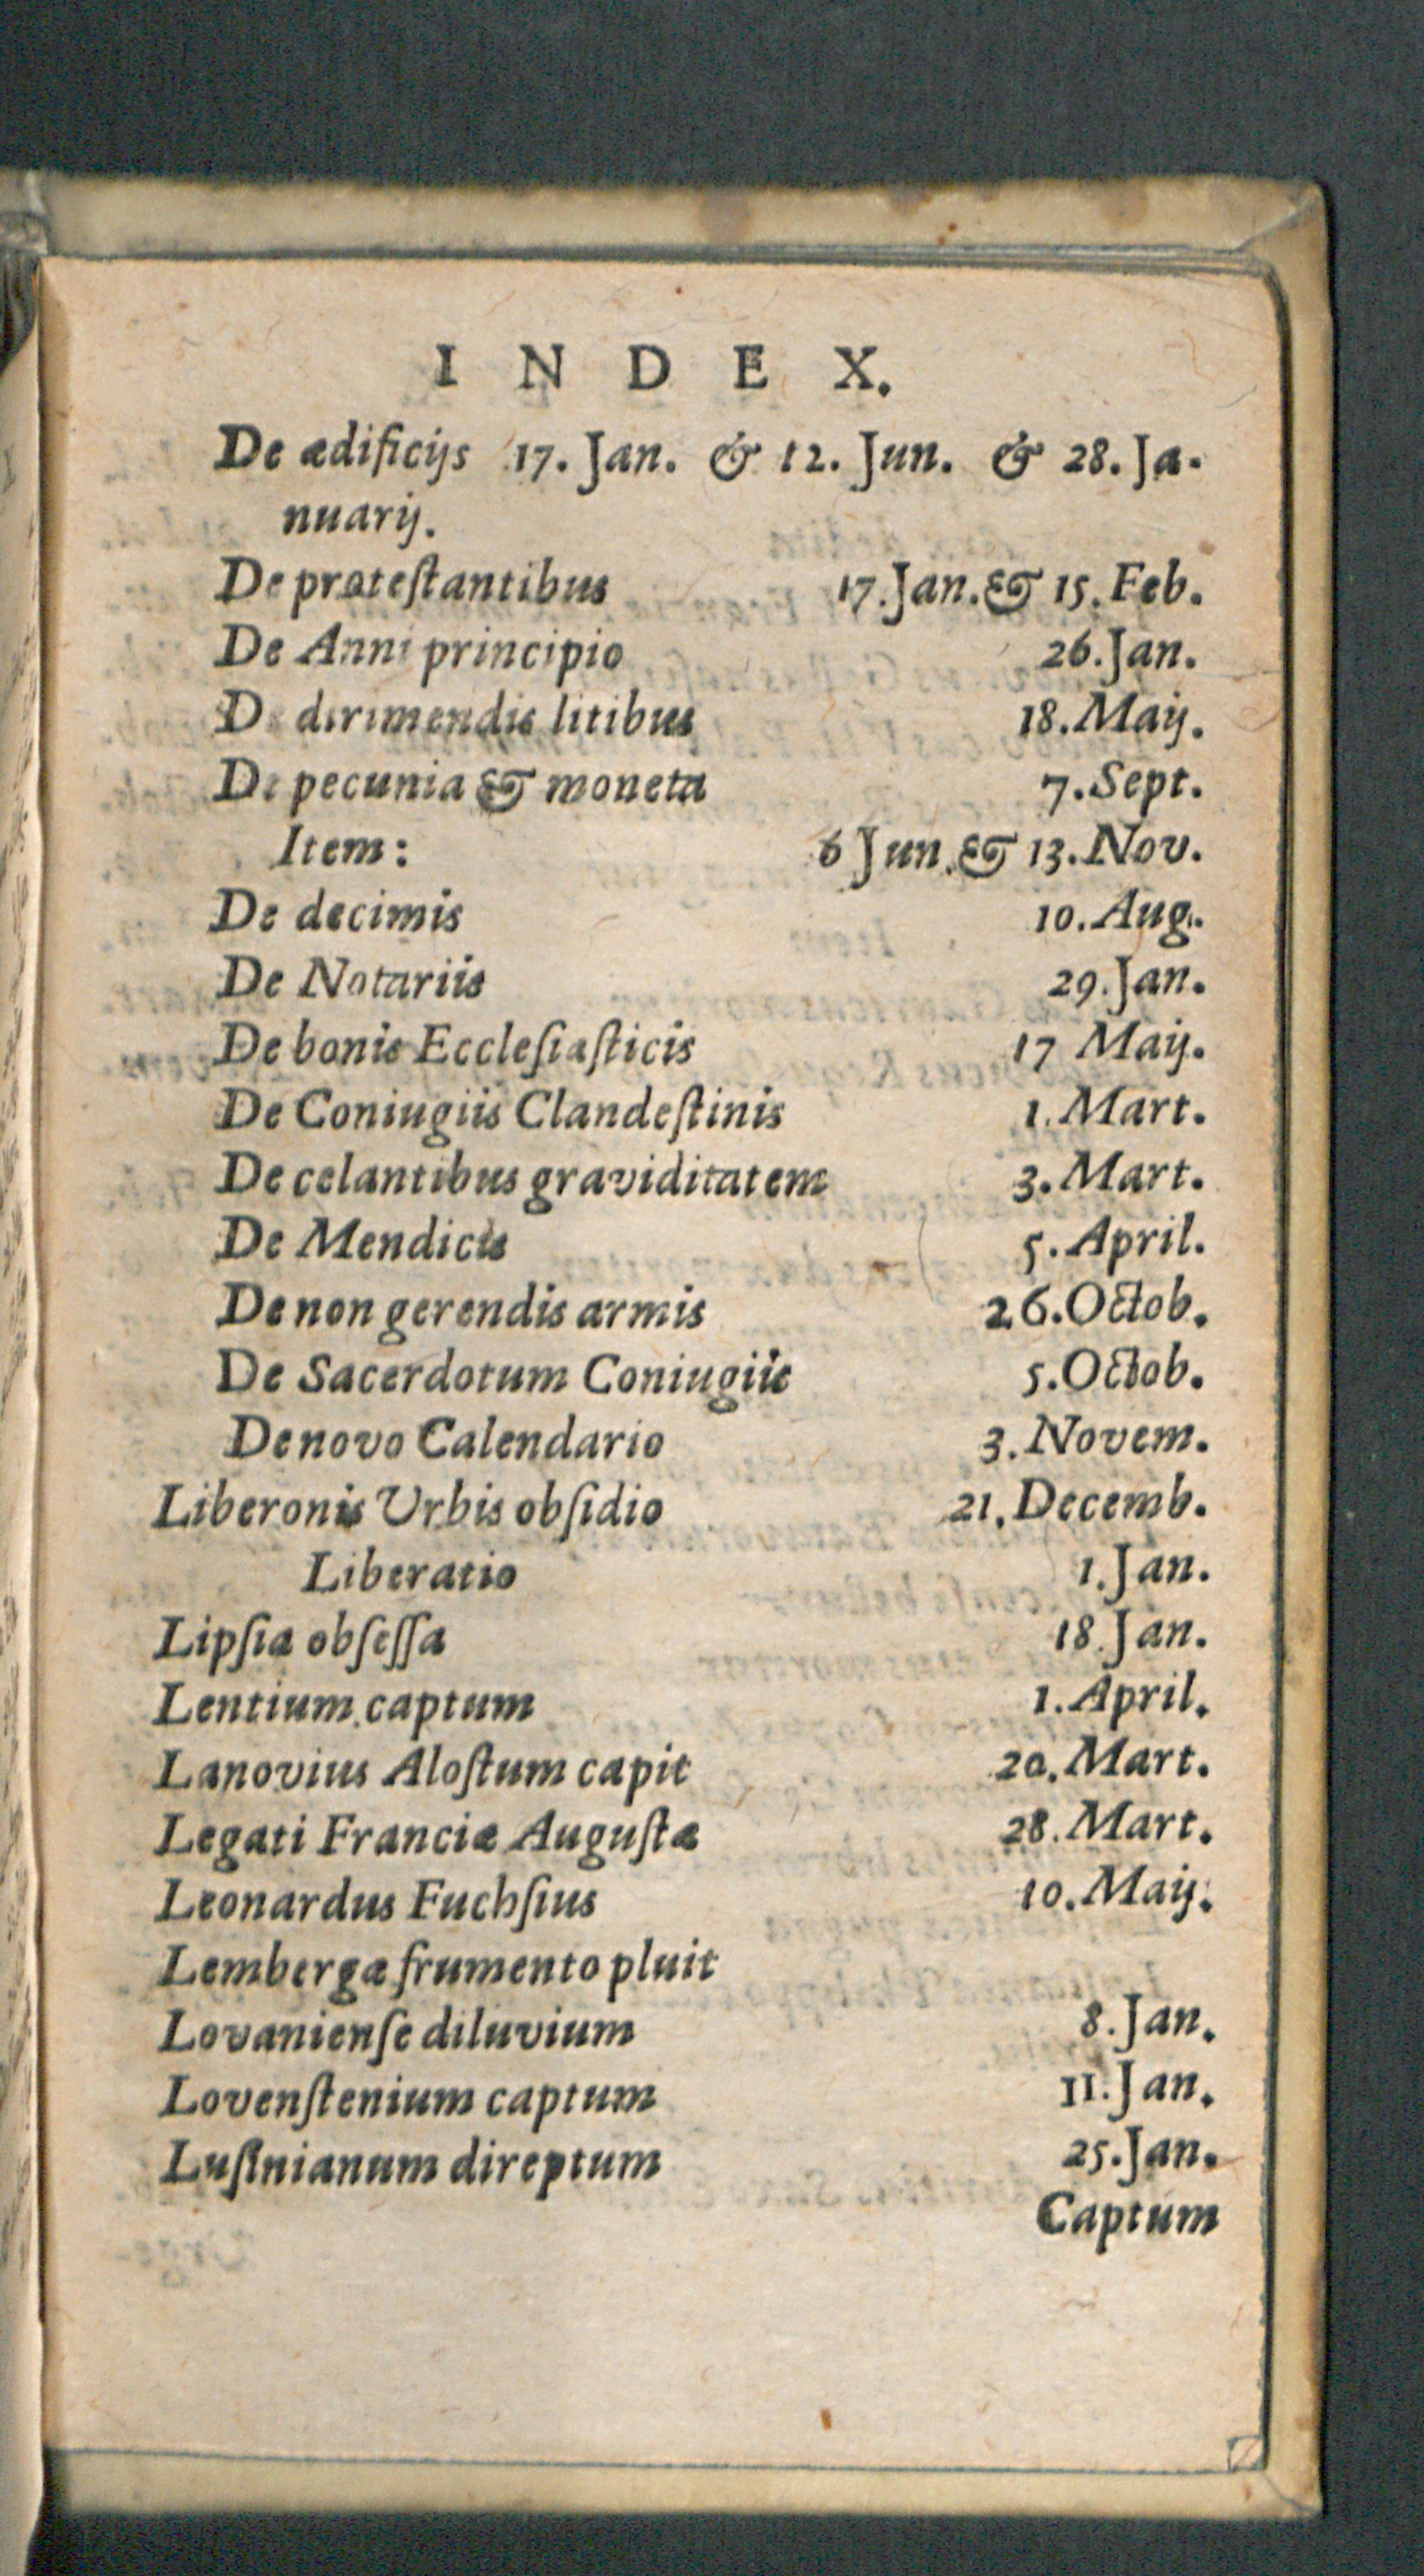 INDEX.
De ædificijs 17. Jan. & 12. Jun. & 28. Ja-
nuarij.
De protestantibus 17. Jan. & 15. Feb.
De Anni principio 26. Jan.
De dirimendis litibus 18. Maij.
De pecunia & moneta 7. Sept.
Item: 6 Jun. & 13. Nov.
De decimis 10. Aug.
De Notariis 29. Jan.
De bonis Ecclesiasticis 17 Maij.
De Coniugiis Clandestinis 1. Mart.
De celantibus graviditatem 3. Mart.
De Mendicis 5. April.
De non gerendis armis 26. Octob.
De Sacerdotum Coniugiis 5. Octob.
De novo Calendario 3. Novem.
Liberonis Urbis obsidio 21. Decemb.
Liberatio 1. Jan.
Lipsia obsessa 18. Jan.
Lentium captum 1. April.
Lanovius Alostum capit 20. Mart.
Legati Franciæ Augustæ 28. Mart.
Leonardus Fuchsius 10. Maij.
Lembergæ frumento pluit
Lovaniense diluvium 8. Jan.
Lovenstenium captum 11. Jan.
Lusinianum direptum 25. Jan.
Captum